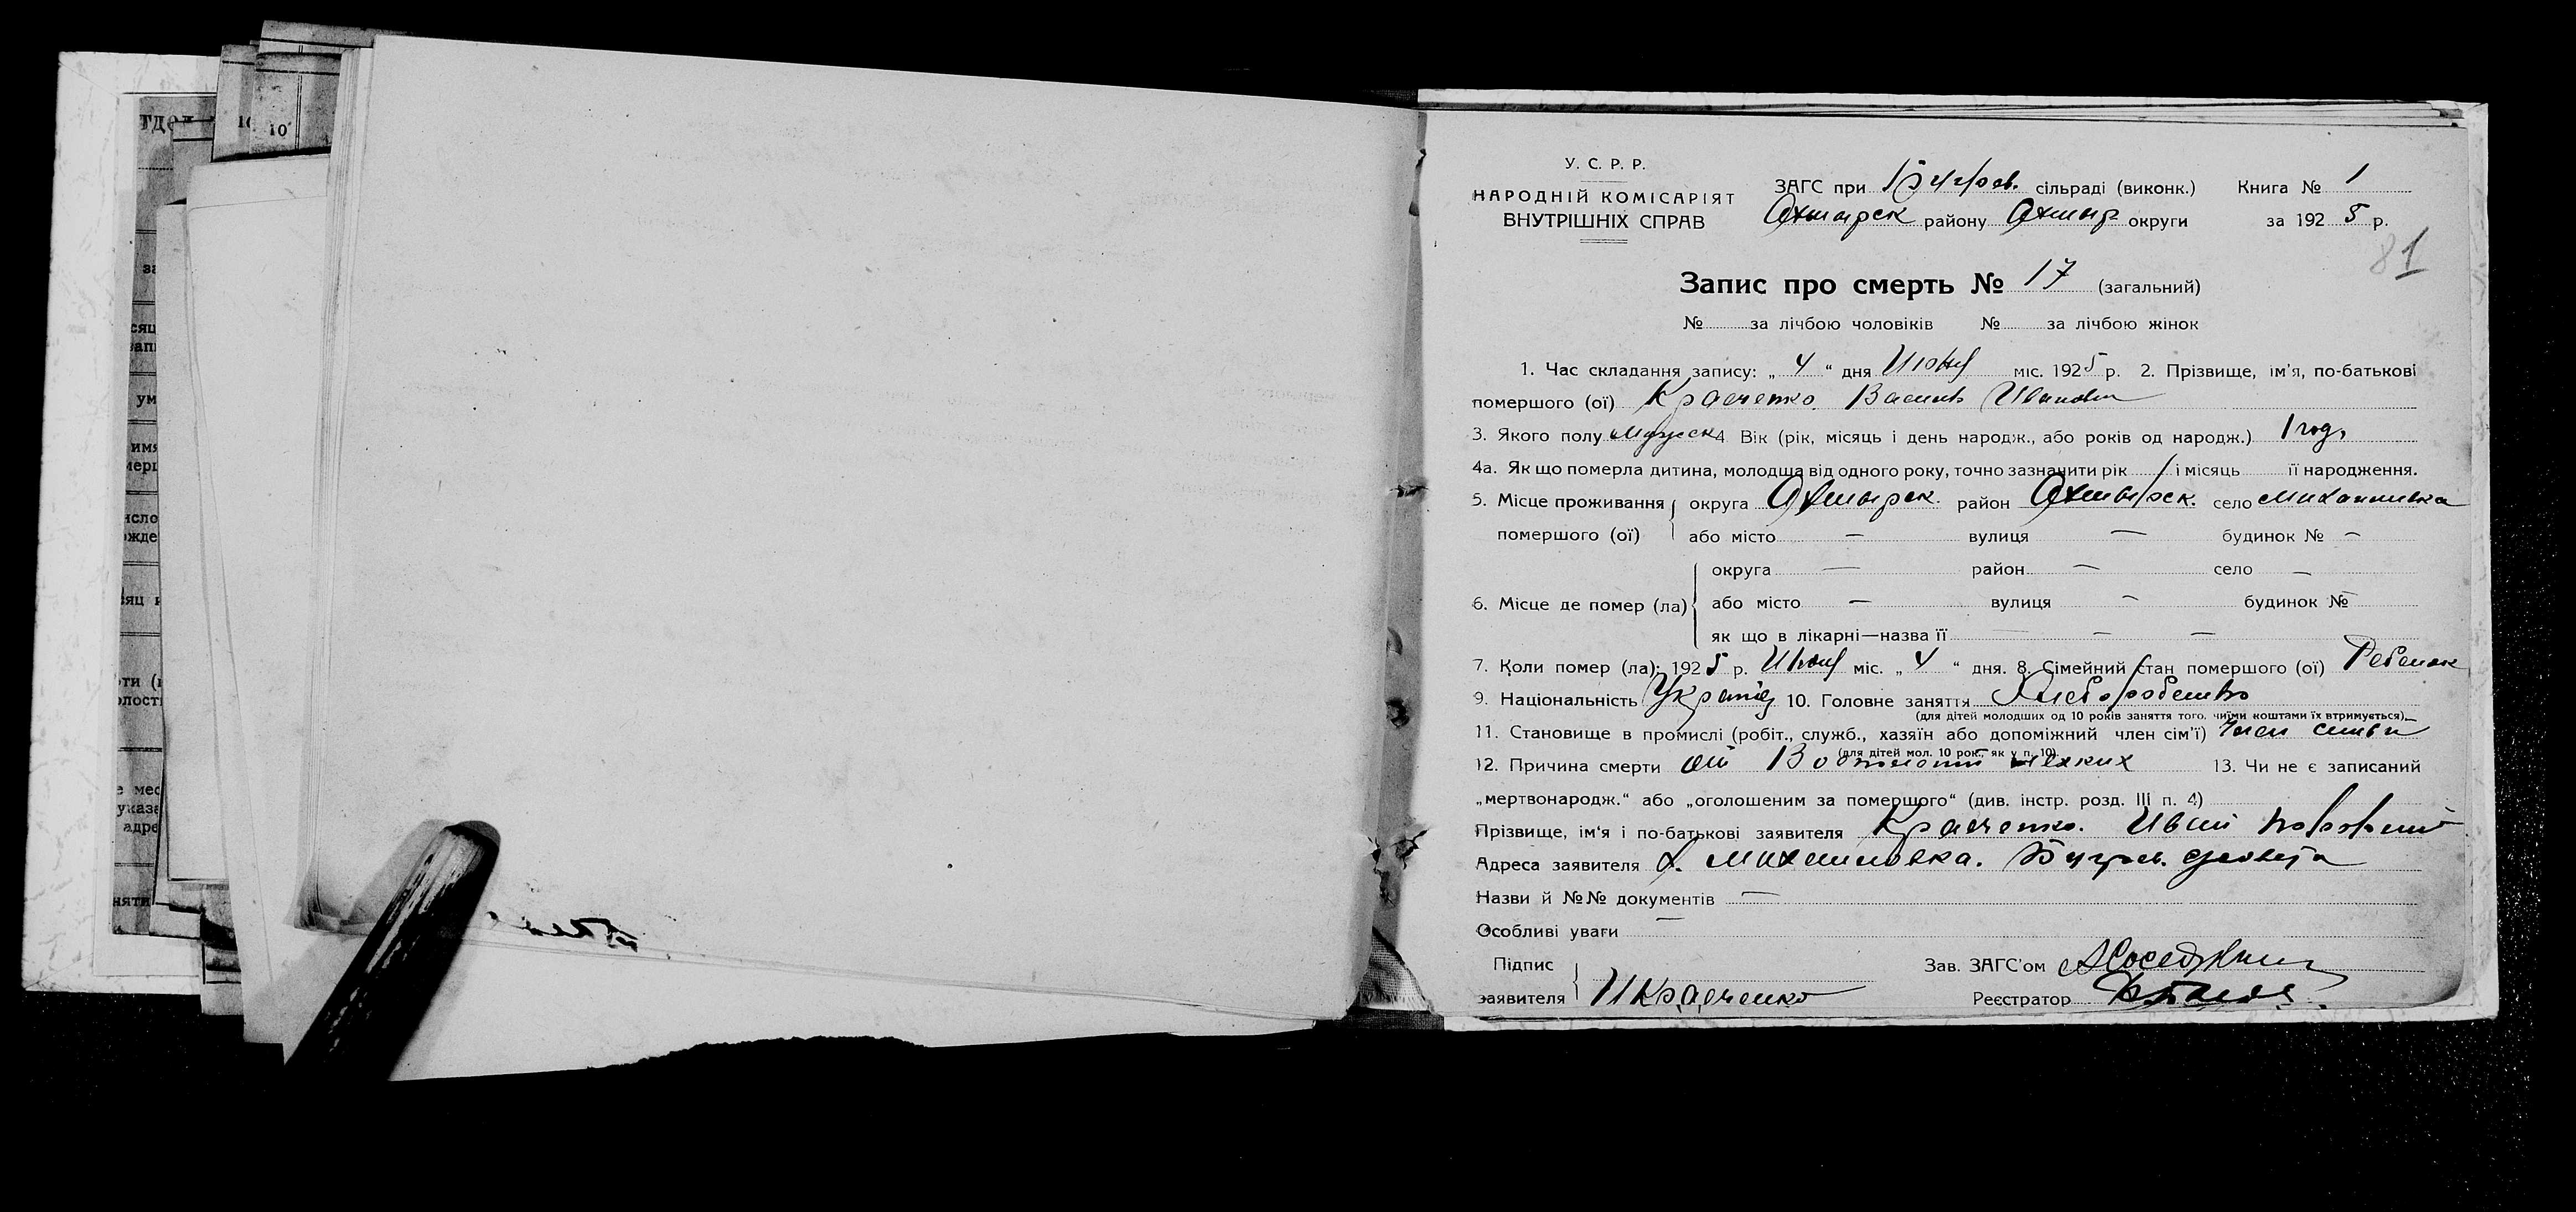 У. С. Р. Р.
НАРОДНІЙ КОМІСАРІЯТ
ВНУТРІШНІХ СПРАВ
ЗАГС при сільраді (виконк.) Книга № 1
Ахтырск району Ахтыр округи за 1925 р.
81
Запис про смерть № 17 (загальний)
№ за лічбою чоловіків № за лічбою жінок
1. Час складання запису: „ 4 “ дня Июня міс. 1925 р. 2. Прізвище, ім'я, по-батькові
помершого (ої) Кравченко Василь Иванович
3. Якого полу Мужеск 4 Вік (рік, місяць і день народж., або років од народж.) 1 год.
4а. Як що померла дитина, молодша від одного року, точно зазначити рік і місяць її народження.
5. Місце проживання округа Ахтырск. район Ахтырск. село Михайловка
помершого (ої) або місто — вулиця — будинок № —
округа — район — село —
6. Місце де помер (ла) або місто — вулиця — будинок №
як що в лікарні—назва її — —
7. Коли помер (ла): 1925 р. Июня міс. „ 4 “ дня. 8. Сімейний стан помершого (ої) Ребенок
9. Національність 10. Головне заняття Хлеборобство
(для дітей молодших од 10 років заняття того, чиїми коштами їх втримується)
11. Становище в промислі (робіт., служб., хазяїн або допоміжний член сім'ї) член семьи
(для дітей мол. 10 рок., як у п. 10)
12. Причина смерти от легких 13. Чи не є записаний
„мертвонародж.“ або „оголошеним за помершого“ (див. інстр. розд. III п. 4)
Прізвище, ім'я і по-батькові заявителя Кравченко. Иван
Адреса заявителя х. Михайловка.
Назви й №№ документів —
Особливі уваги —
Підпис Зав. ЗАГС'ом
заявителя ИКравченко Реєстратор